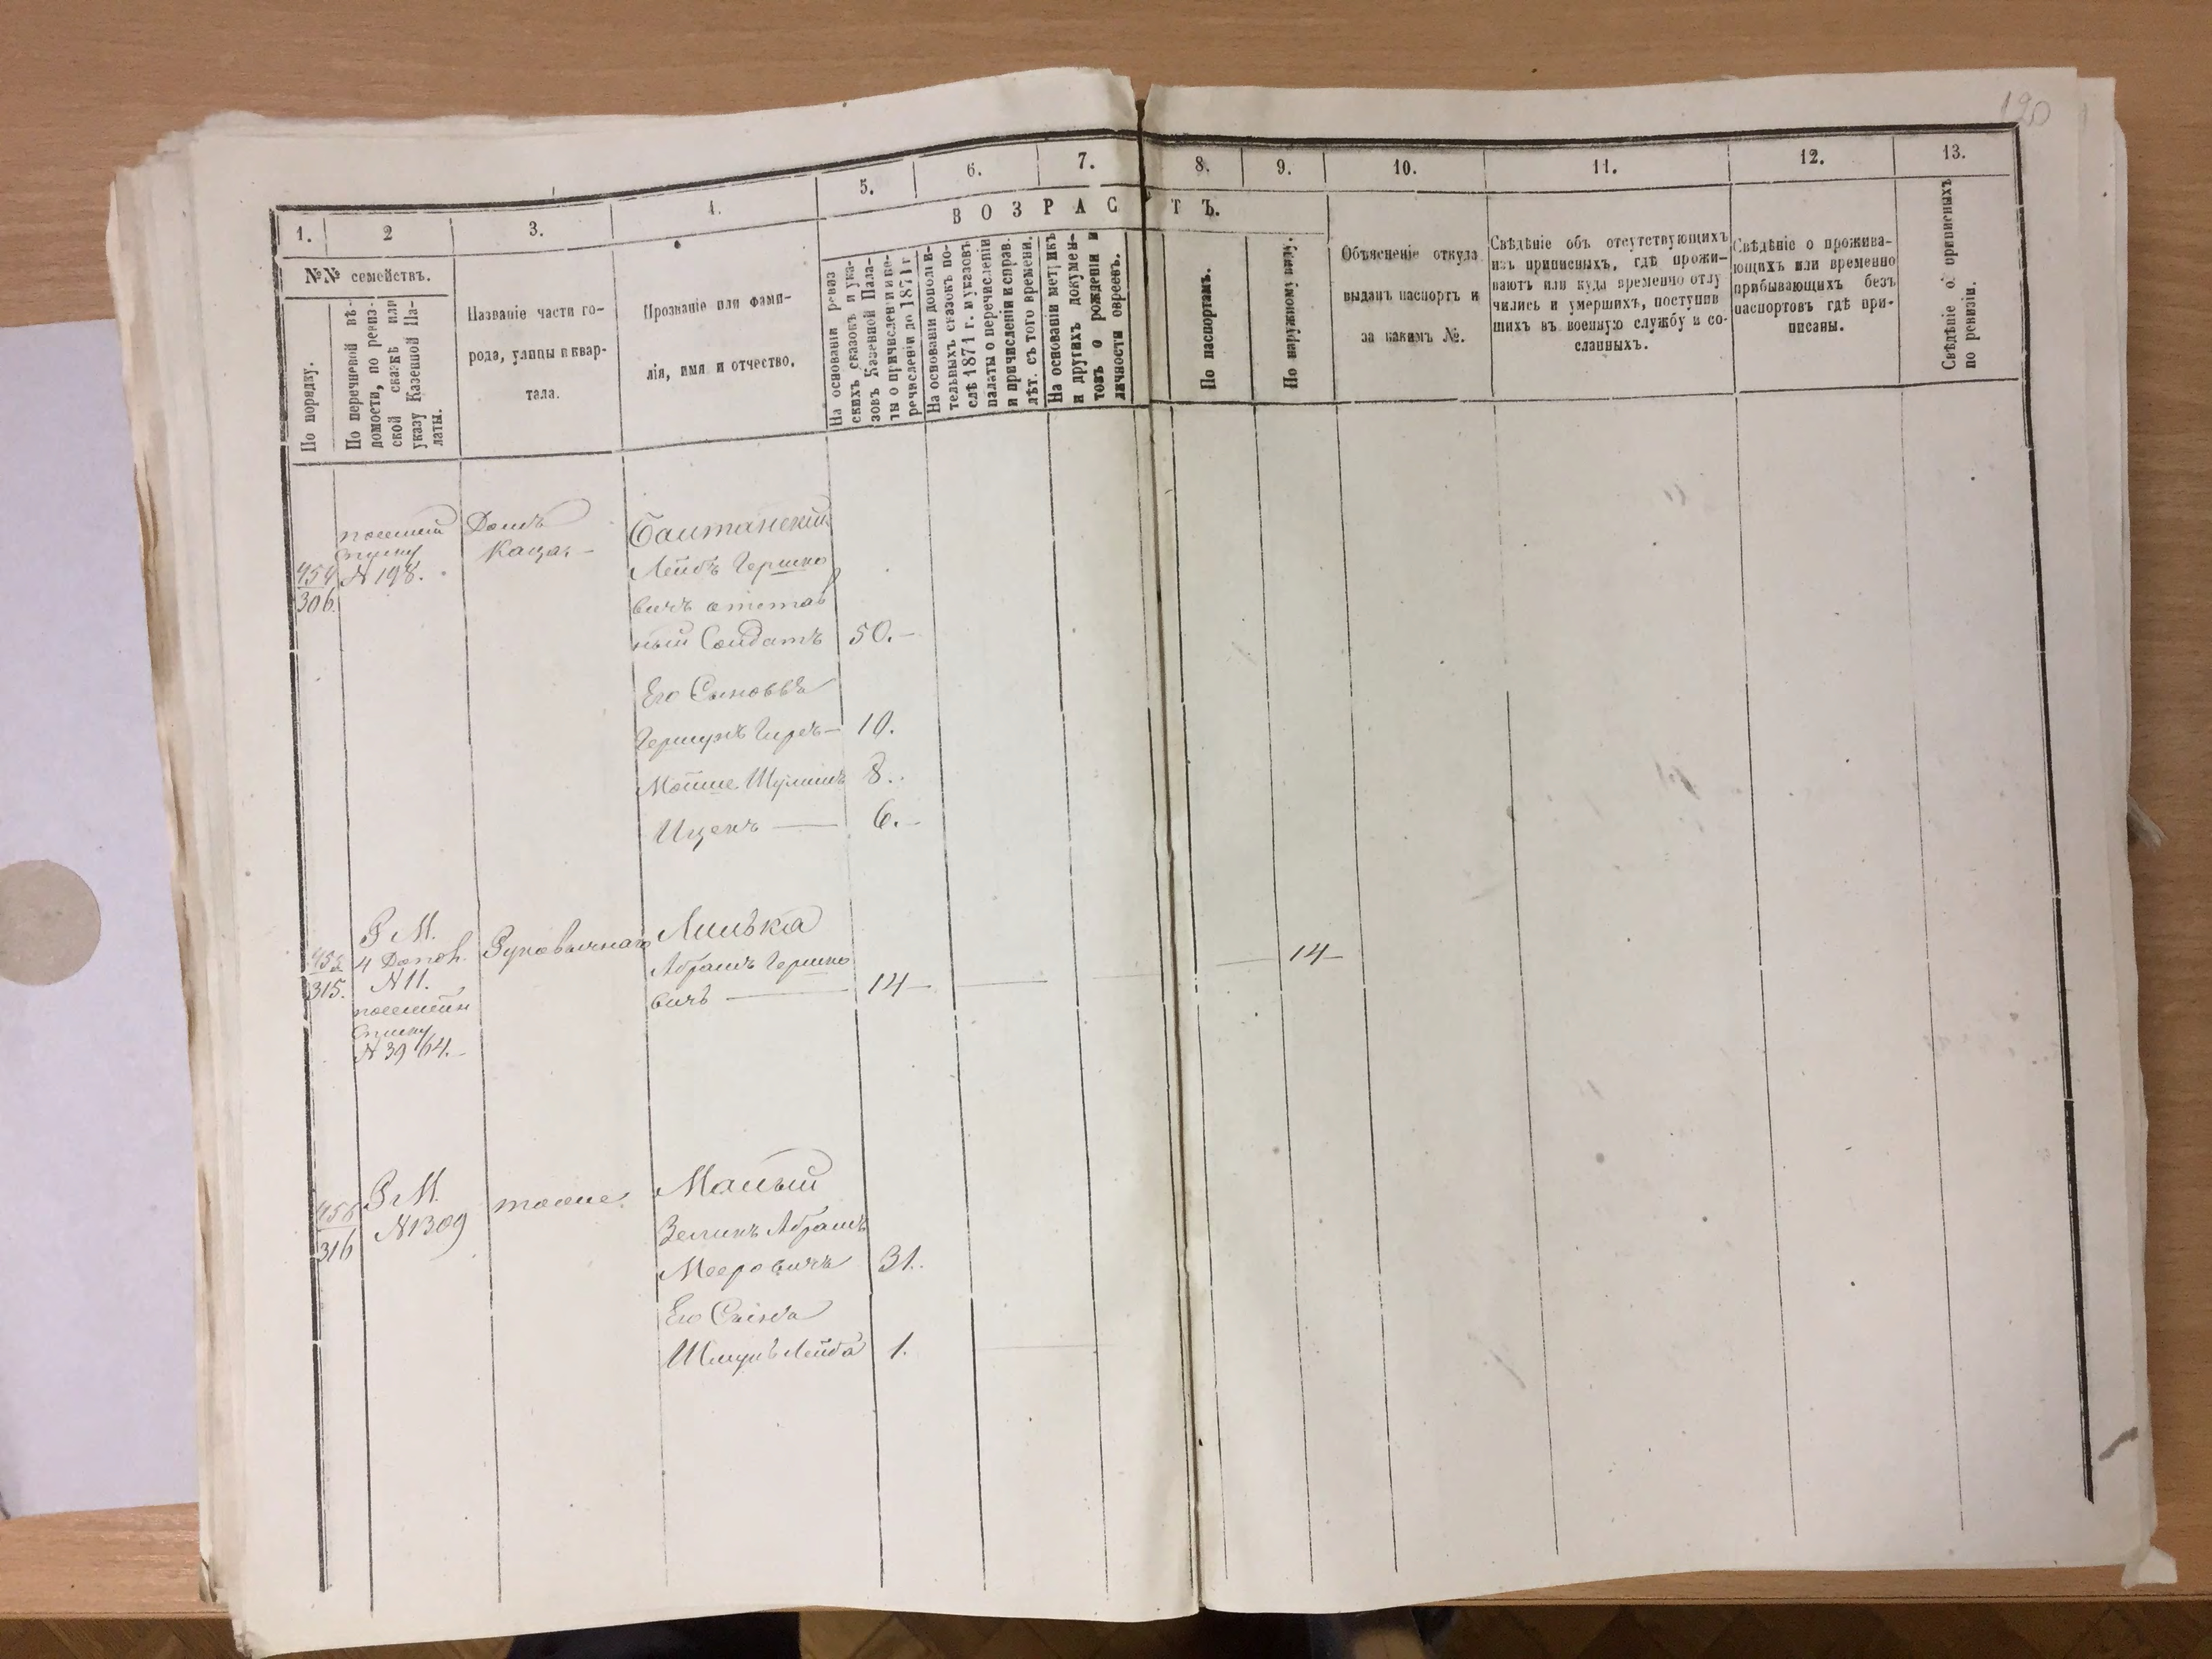 120
1.
2
3.
4.
5.
6.
7.
8.
9.
10.
11.
12.
13.
ВОЗРАСТЪ.
№№ семействъ.
По порядку.
По перечневой вѣ-
домости, по ревиз-
ской сказкѣ или
указу Казенной Па-
латы.
Названіе части го-
рода, улицы и квар-
тала.
Прозваніе или фами-
лія, имя и отчество.
На основаніи ревиз
скихъ сказокъ и ука-
зовъ Казенной Пала-
ты о причисленіи и пе-
речисленіи до 1871 г
На основаніи дополни-
тельныхъ сказокъ по-
слѣ 1871 г. и указовъ
палаты о перечисленіи
и причисленіи исправ.
лѣт. съ того времени.
На основаніи метрикъ
и другихъ докумен-
товъ о рожденіи и
личности евреевъ.
По паспортамъ.
По наружному виду.
Объясненіе откуда
выданъ паспортъ и
за какимъ №.
Свѣдѣніе объ отсутствующихъ
изъ приписныхъ, гдѣ прожи-
ваютъ или куда временно отлу
чились и умершихъ, поступив
шихъ въ военную службу и со-
сланныхъ.
Свѣдѣніе о прожива-
ющихъ или временно
прибывающихъ безъ
паспортовъ гдѣ при-
писаны.
Свѣдѣніе о приписныхъ
по ревизіи.
454
306.
посемей
списку
N 198.
Домъ
Кацач-
Балтанскій
Лейбъ Гершко
вичъ отстав
ный Солдатъ 50.-
Его Сыновья
Гершунъ 10.
Мойше 8.
Ицекъ — 6.-
315.
Р М.
4 Допол.
N 11.
посемейн
списку
N 39/64.-
Лилька
Абрамъ Гершко
вичъ — 14 — — — 14
316
Р М.
N 1309
тоже
Малый
Зеликъ Абрамъ
Мееровичъ 31.
Его Сынъ
Шмуль Лейба 1.